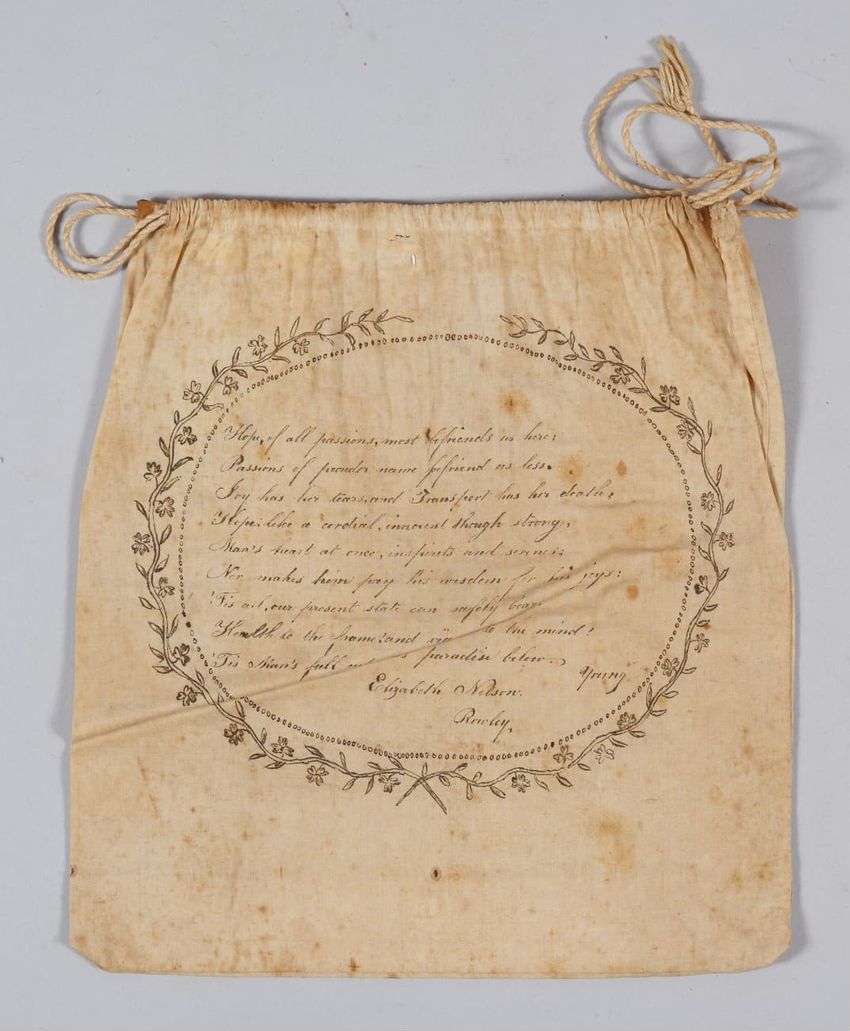 Hope, of all passions, most befriends us here:
Passions of prouder name befriend us less.
Joy has her tears, and Transport has her death.
Hope, like a cordial, innocent though strong,
Man's heart at once, inspirits and serenes;
Nor makes him pay his wisdom for his joys:
'Tis all, our present state can safely bear
Health to the frame! and to the mind!
'Tis Man's full paradise below.
Young.
Elizabeth Nelson.
Rowley,